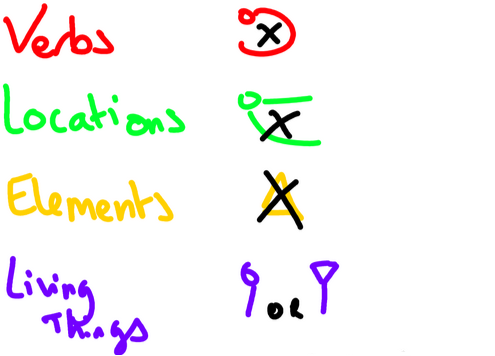 Verbs X
Locations X
Elements X
Living
Things OR